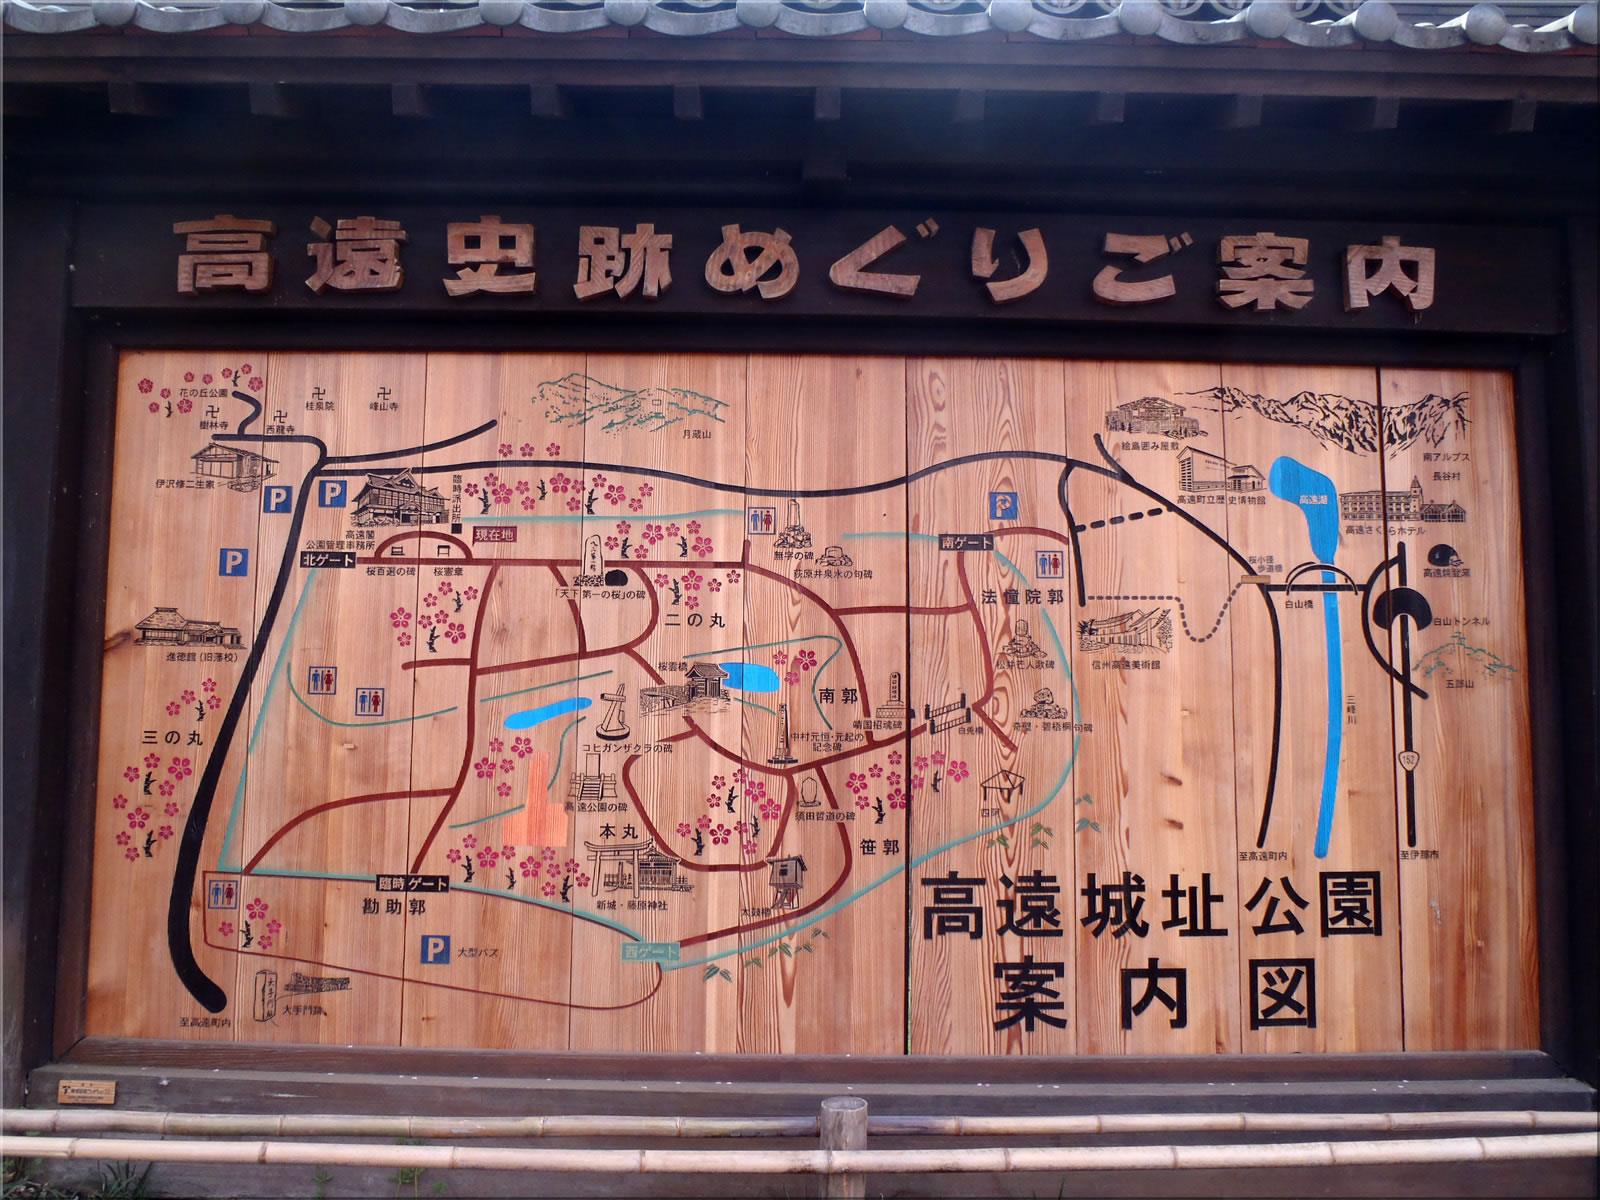 高遠史跡めぐりご案内
花の丘公園
樹林寺
西龍寺
桂泉院
峰山寺
月蔵山
伊沢修二生家
P
P
P
高遠閣
公園管理事務所
臨時派出所
現在地
北ゲート
桜百選の碑
桜憲章
「天下第一の桜」の碑
無字の碑
荻原井泉水の句碑
南ゲート
P
法幢院郭
二の丸
進徳館(旧藩校)
三の丸
桜雲橋
南郭
靖国招魂碑
白兎橋
松井芒人歌碑
奇壁・碧梧桐句碑
中村元恒・元起の
記念碑
コヒガンザクラの碑
高遠公園の碑
本丸
須田哲道の碑
四阿
笹郭
新城・藤原神社
太鼓櫓
臨時ゲート
勘助郭
西ゲート
P
大型バス
大手門跡
至高遠町内
絵島囲み屋敷
高遠町立歴史博物館
高遠湖
南アルプス
長谷村
高遠さくらホテル
高遠焼登窯
桜小径
歩道橋
白山橋
白山トンネル
五郎山
信州高遠美術館
三峰川
152
至高遠町内
至伊那市
高遠城址公園
案内図